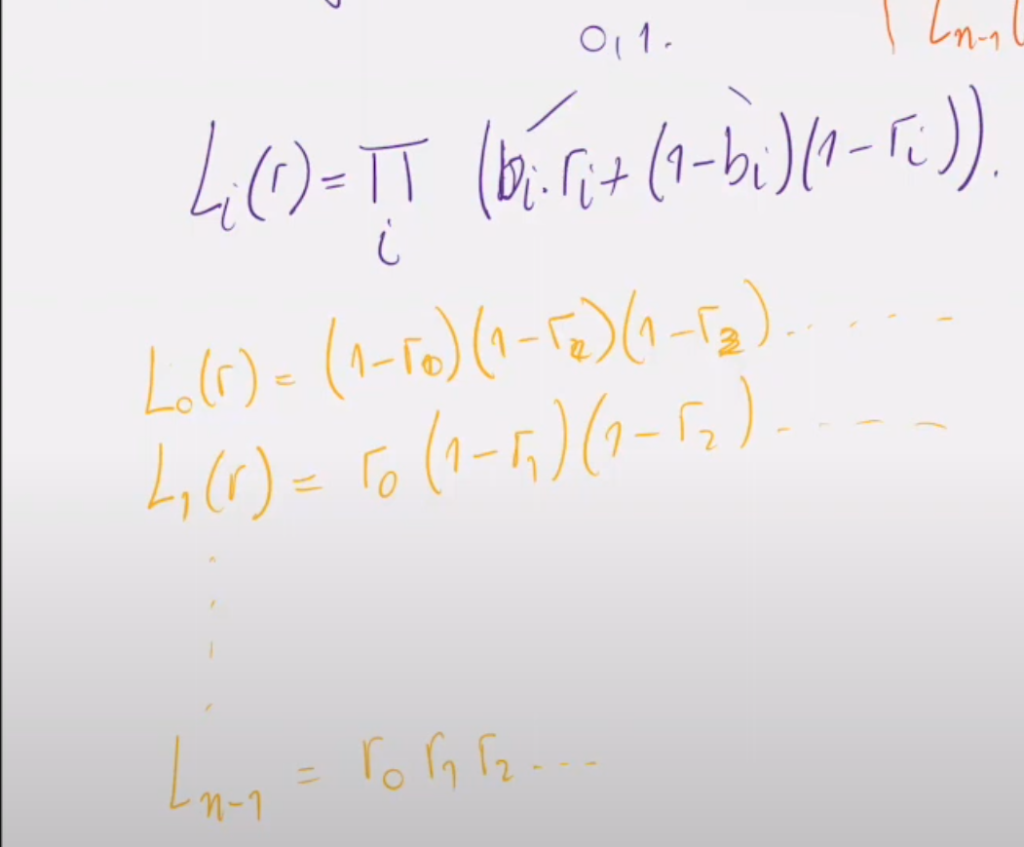 0,1.
L_{n-1}(
L_i(r) = ∏_i (b_i·r_i + (1-b_i)(1-r_i)).
L_0(r) = (1-r_0)(1-r_1)(1-r_2).....
L_1(r) = r_0(1-r_1)(1-r_2).....
L_{n-1} = r_0 r_1 r_2 ...